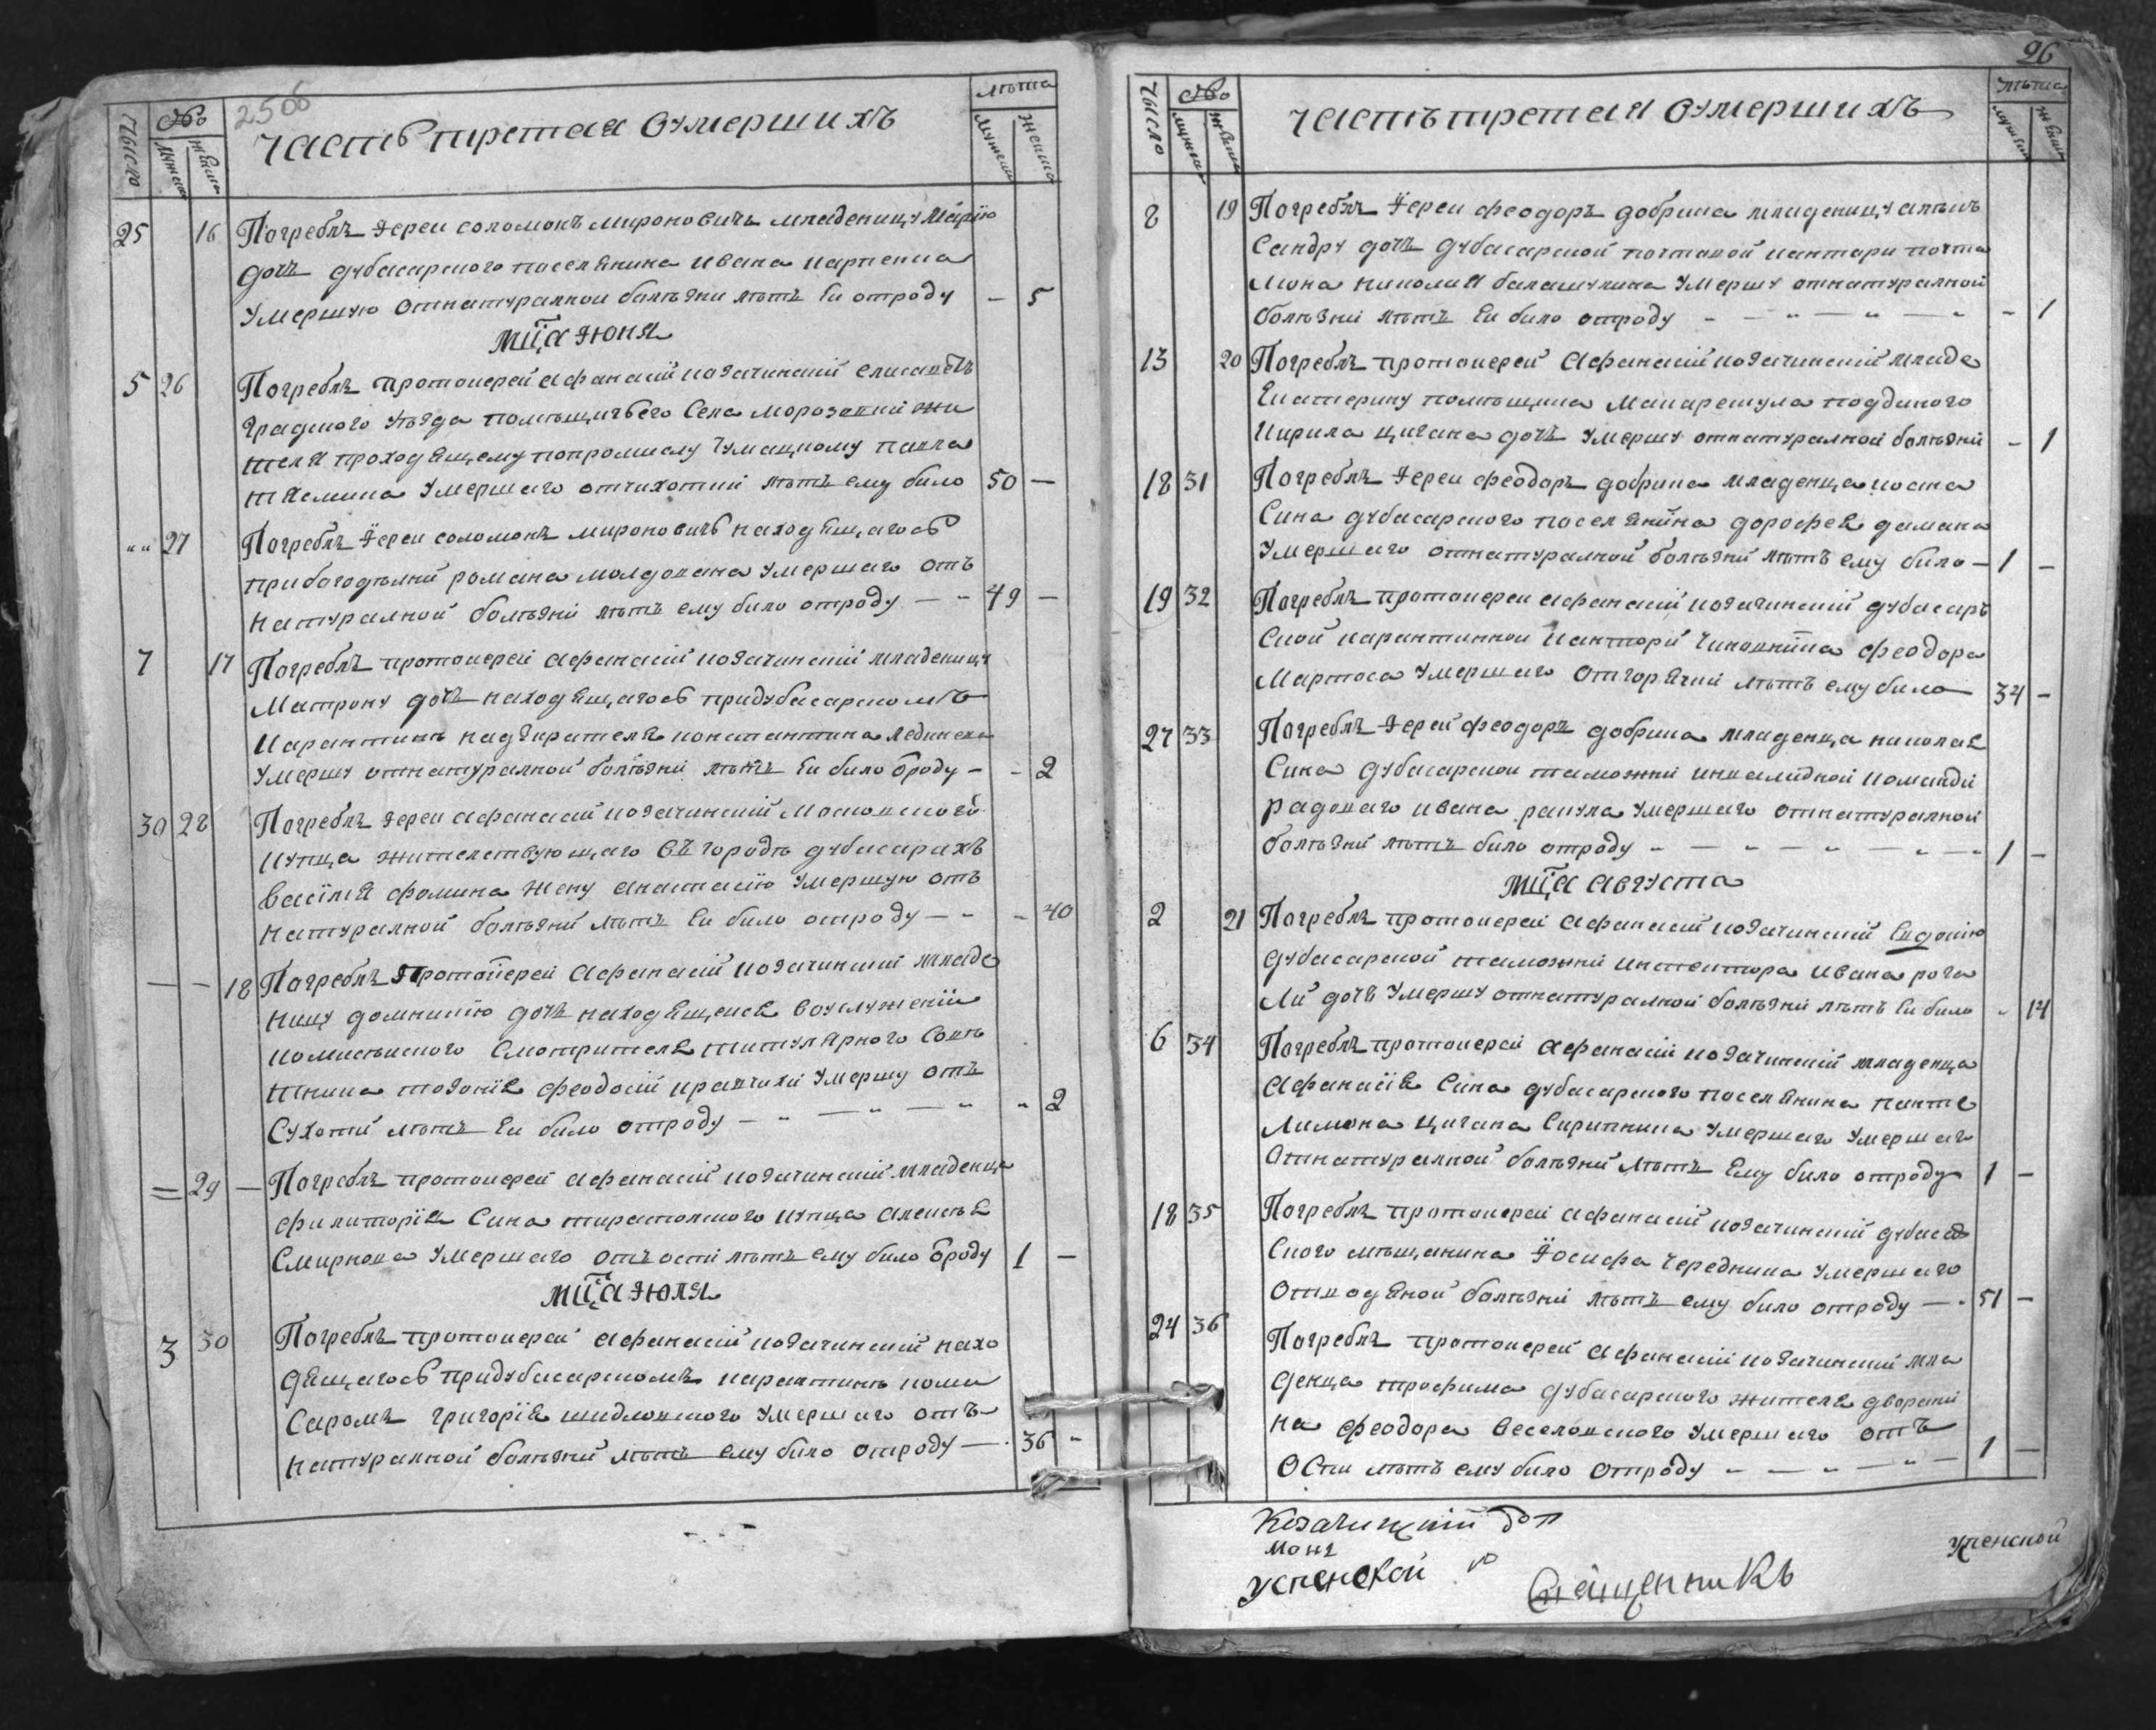 25об
Число №о Мужеска Женска часть третая оумершихъ лѣта Мужеска Женска
25 16 Погреблъ Іереи соломонъ мироновичъ младеницу Марію
дочъ дубасарского поселянина ивана карпенка
умершую отнатуралнои болѣзни лѣтъ Еи отроду - 5
мца июня
5 26 Погреблъ протоиерей афанасій козачинский елисаветъ
градского уѣзда помѣщичьего Села морозовки жи
теля проходящему попромислу Чумацкому павла
умершаго отчихотки лѣтъ ему било 50 —
" " 27 Погреблъ Іереи соломонъ мироновичъ находящагось
прибогодѣлни романа молдована умершаго отъ
натуралной болѣзни лѣтъ ему било отроду — - 49 —
7 17 Погреблъ протоиерей афанасий козачинский младеницу
Матрону дочъ находящагось придубасарскомъ
Карантинѣ надзирателя константина
умершу отнатуралной болѣзни лѣтъ Еи било ѿроду - - 2
30 28 Погреблъ Іереи афанасий козачинский Московской
купца жителствующаго въ городѣ дубасарахъ
василия фомина жену анастасію умершую отъ
натуралной болѣзни лѣтъ Еи било отроду — - - 40
— — 18 Погреблъ Протоиерей Афанасій козачинский младе
ницу домникию дочъ находящеися воуслужении
комисѣиского Смотрителя титулярного Совѣ
тника феодосий умершу отъ
Сухоти лѣтъ Еи било отроду — - — - — - - 2
= 29 — Погреблъ протоиерей афанасий козачинский младенца
Сина тираполского купца алексѣя
Смирнова умершаго отъ оспи лѣтъ ему било ѿроду 1 —
мца июля
3 30 Погреблъ протоиерей афанасий козачинский нахо
дящагось придубасарскомъ карантинѣ коми
Саромъ григорія шидловского умершаго отъ
натуралной болѣзни лѣтъ ему било отроду — - 36 -
26
Число №о Мужеска Женска часть третая оумершихъ лѣта Мужеска Женска
8 19 Погреблъ Іереи феодоръ добрина младеницу алѣкъ
Сандру дочъ дубасарской почтовой канторы почта
лиона николая умершу отнатуралной
болѣзни лѣтъ Еи било отроду - — - — - — - - 1
13 20 Погреблъ протоиерей афанасий козачинский младе
Екатерину помѣщика подданого
Кирила цигана дочъ умершу отнатуралной болѣзни - 1
18 31 Погреблъ Іереи феодоръ добрина младенца иоана
Сина дубасарского поселянина дорофея
умершаго отнатуралной болѣзни лѣтъ ему било - 1 —
19 32 Погреблъ протоиереи афанасий козачинский дубасаръ
Скои карантинной канторы Чиновника феодора
Мартоса умершаго отгорячки лѣтъ ему било 34 -
27 33 Погреблъ Іерей феодоръ добрина младенца николая
Сина дубасарскои таможни инвалидной команди
радоваго ивана умершаго отнатуралной
болѣзни лѣтъ било отроду - — - — - — - 1 —
мца августа
2 21 Погреблъ протоиерей афанасий козачинский Евдокию
дубасарской таможни ивана рога
ли дочъ умершу отнатуралной болѣзни лѣтъ Еи било - 14
6 34 Погреблъ протоиерей афанасий козачинский младенца
афанасия Сина дубасарского поселянина панте
лимона цигана Скрипника умершаго умершаго
отнатуралной болѣзни лѣтъ Ему било отроду 1 —
18 35 Погреблъ протоиерей афанасий козачинский дубасар
Ского мѣщанина Іосифа Чередника умершаго
отводяной болѣзни лѣтъ ему било отроду — - 51 —
24 36 Погреблъ протоиерей афанасий козачинский мла
денца трофима дубасарского жителя дворани
на феодора веселовского умершаго отъ
Оспи лѣтъ ему било отроду - — - — - — 1 —
Козачинский
Успенской
Священникъ
Успенской